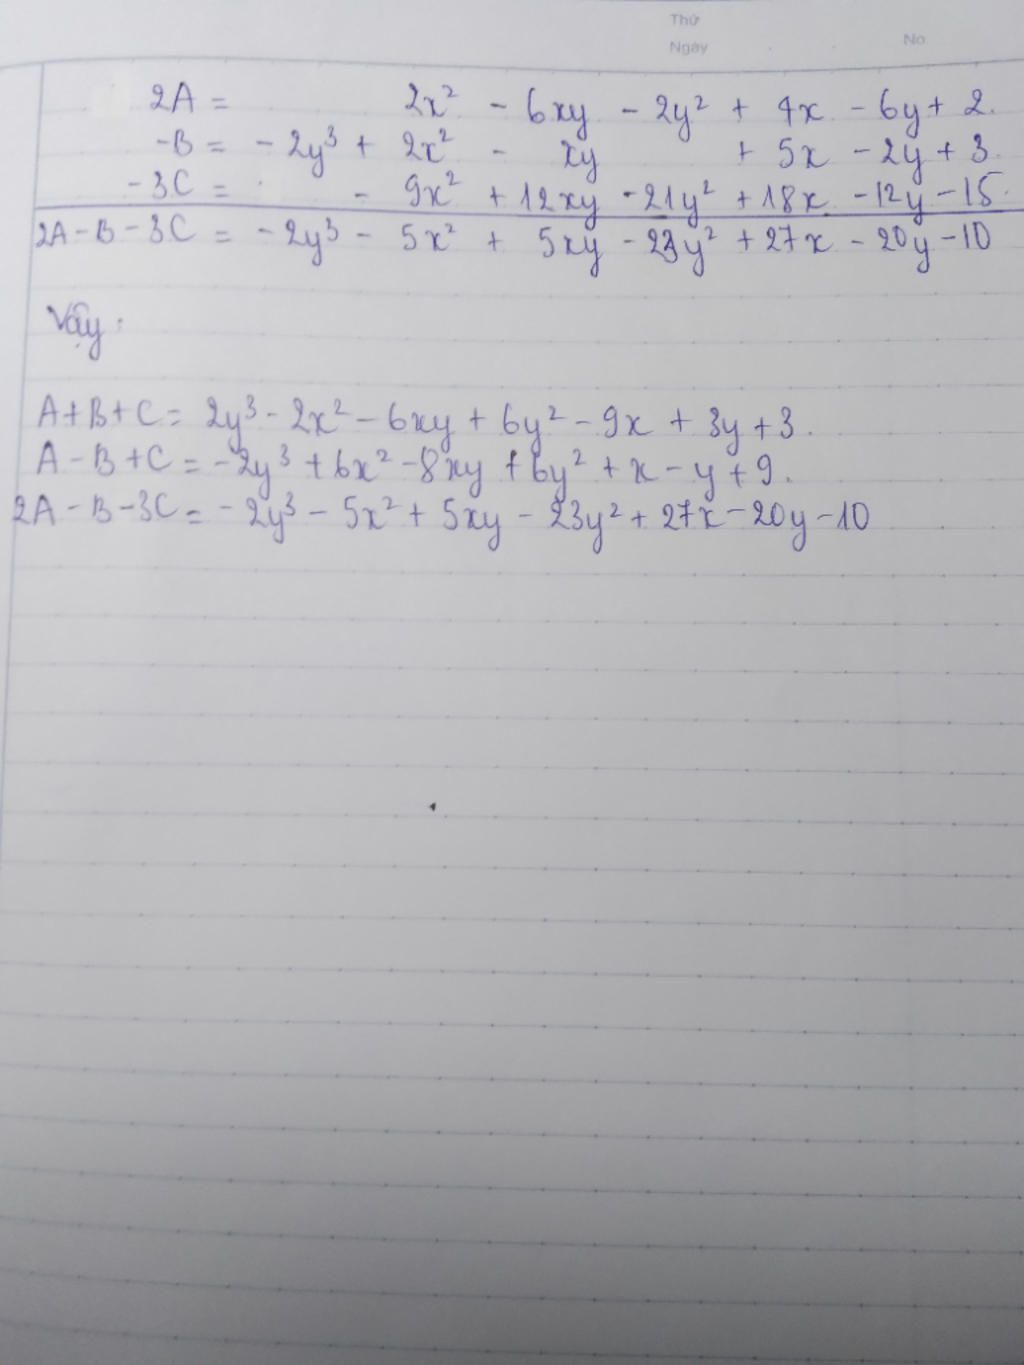 Thứ
Ngày No
2A = 2x² - 6xy - 2y² + 4x - 6y + 2.
-B = - 2y³ + 2x² - xy + 5x - 2y + 3
-3C = - 9x² + 12xy - 21y² + 18x - 12y - 15.
2A - B - 3C = - 2y³ - 5x² + 5xy - 23y² + 27x - 20y - 10
Vậy:
A + B + C = 2y³ - 2x² - 6xy + 6y² - 9x + 3y + 3.
A - B + C = - 2y³ + 6x² - 8xy + 6y² + x - y + 9.
2A - B - 3C = - 2y³ - 5x² + 5xy - 23y² + 27x - 20y - 10